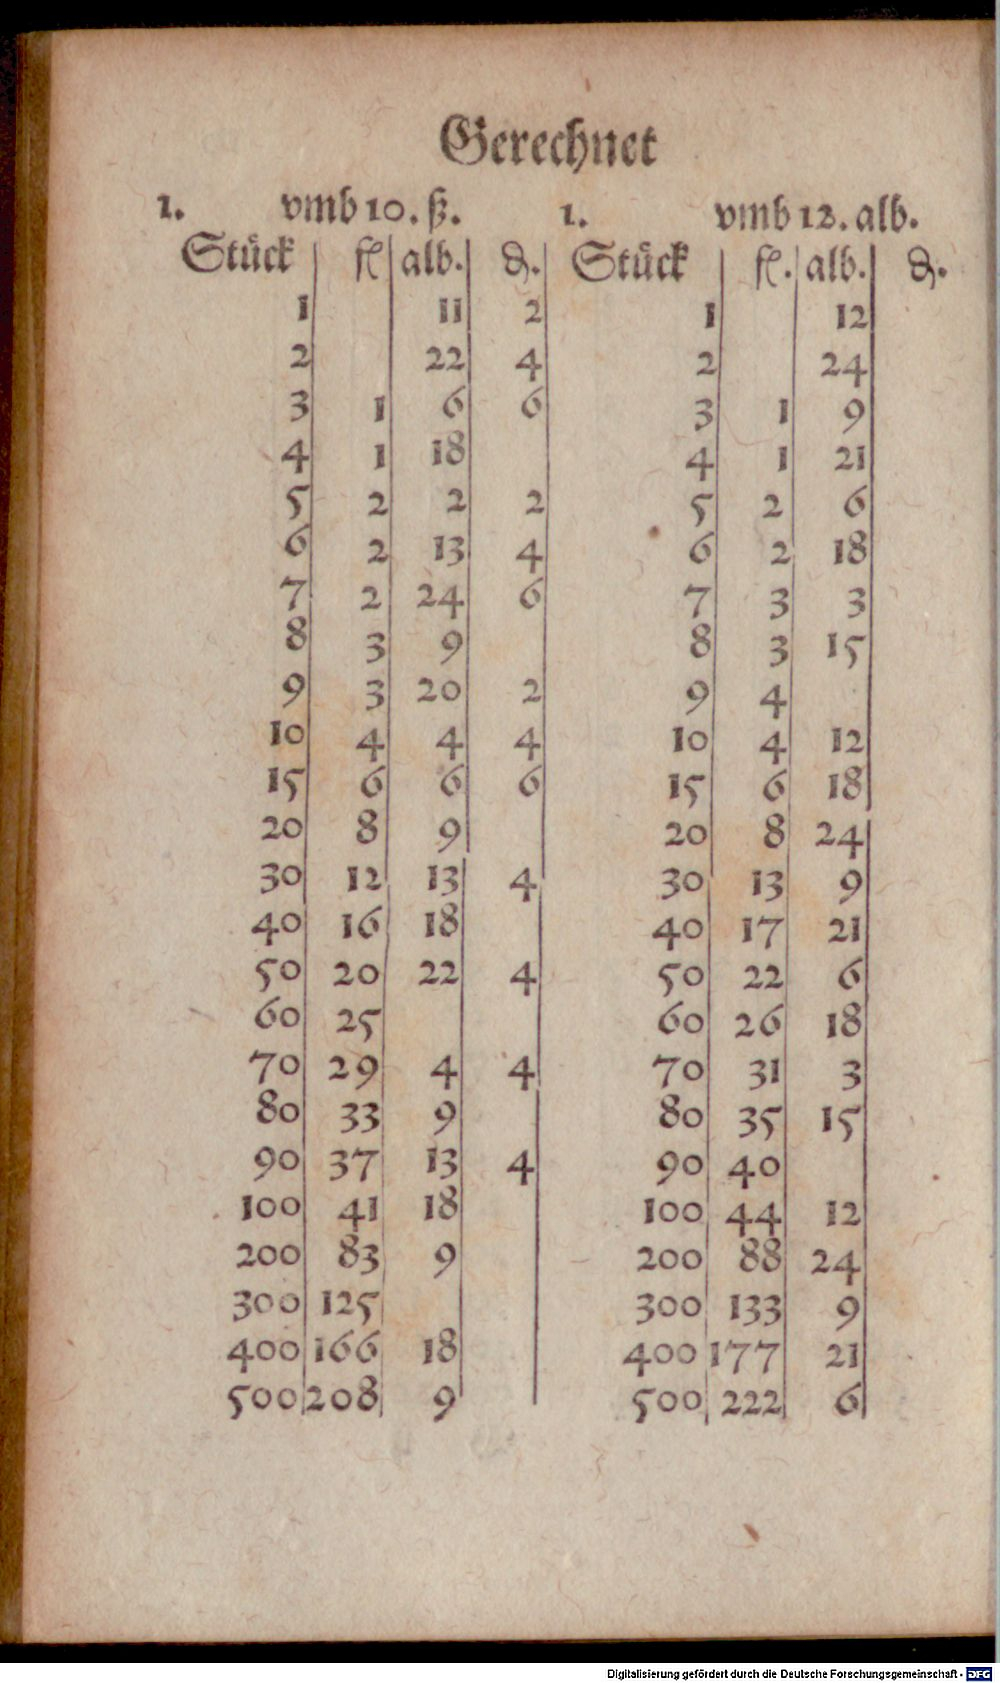 Gerechnet
1. vmb 10. ß. 1. vmb 12. alb.
Stück fl alb. ₰. Stück fl. alb. ₰.
1 11 2 1 12
2 22 4 2 24
3 1 6 6 3 1 9
4 1 18 4 1 21
5 2 2 2 5 2 6
6 2 13 4 6 2 18
7 2 24 6 7 3 3
8 3 9 8 3 15
9 3 20 2 9 4
10 4 4 4 10 4 12
15 6 6 6 15 6 18
20 8 9 20 8 24
30 12 13 4 30 13 9
40 16 18 40 17 21
50 20 22 4 50 22 6
60 25 60 26 18
70 29 4 4 70 31 3
80 33 9 80 35 15
90 37 13 4 90 40
100 41 18 100 44 12
200 83 9 200 88 24
300 125 300 133 9
400 166 18 400 177 21
500 208 9 500 222 6
Digitalisierung gefördert durch die Deutsche Forschungsgemeinschaft - DFG